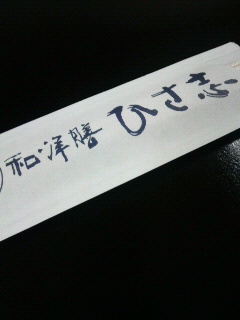 和洋膳 ひさ志